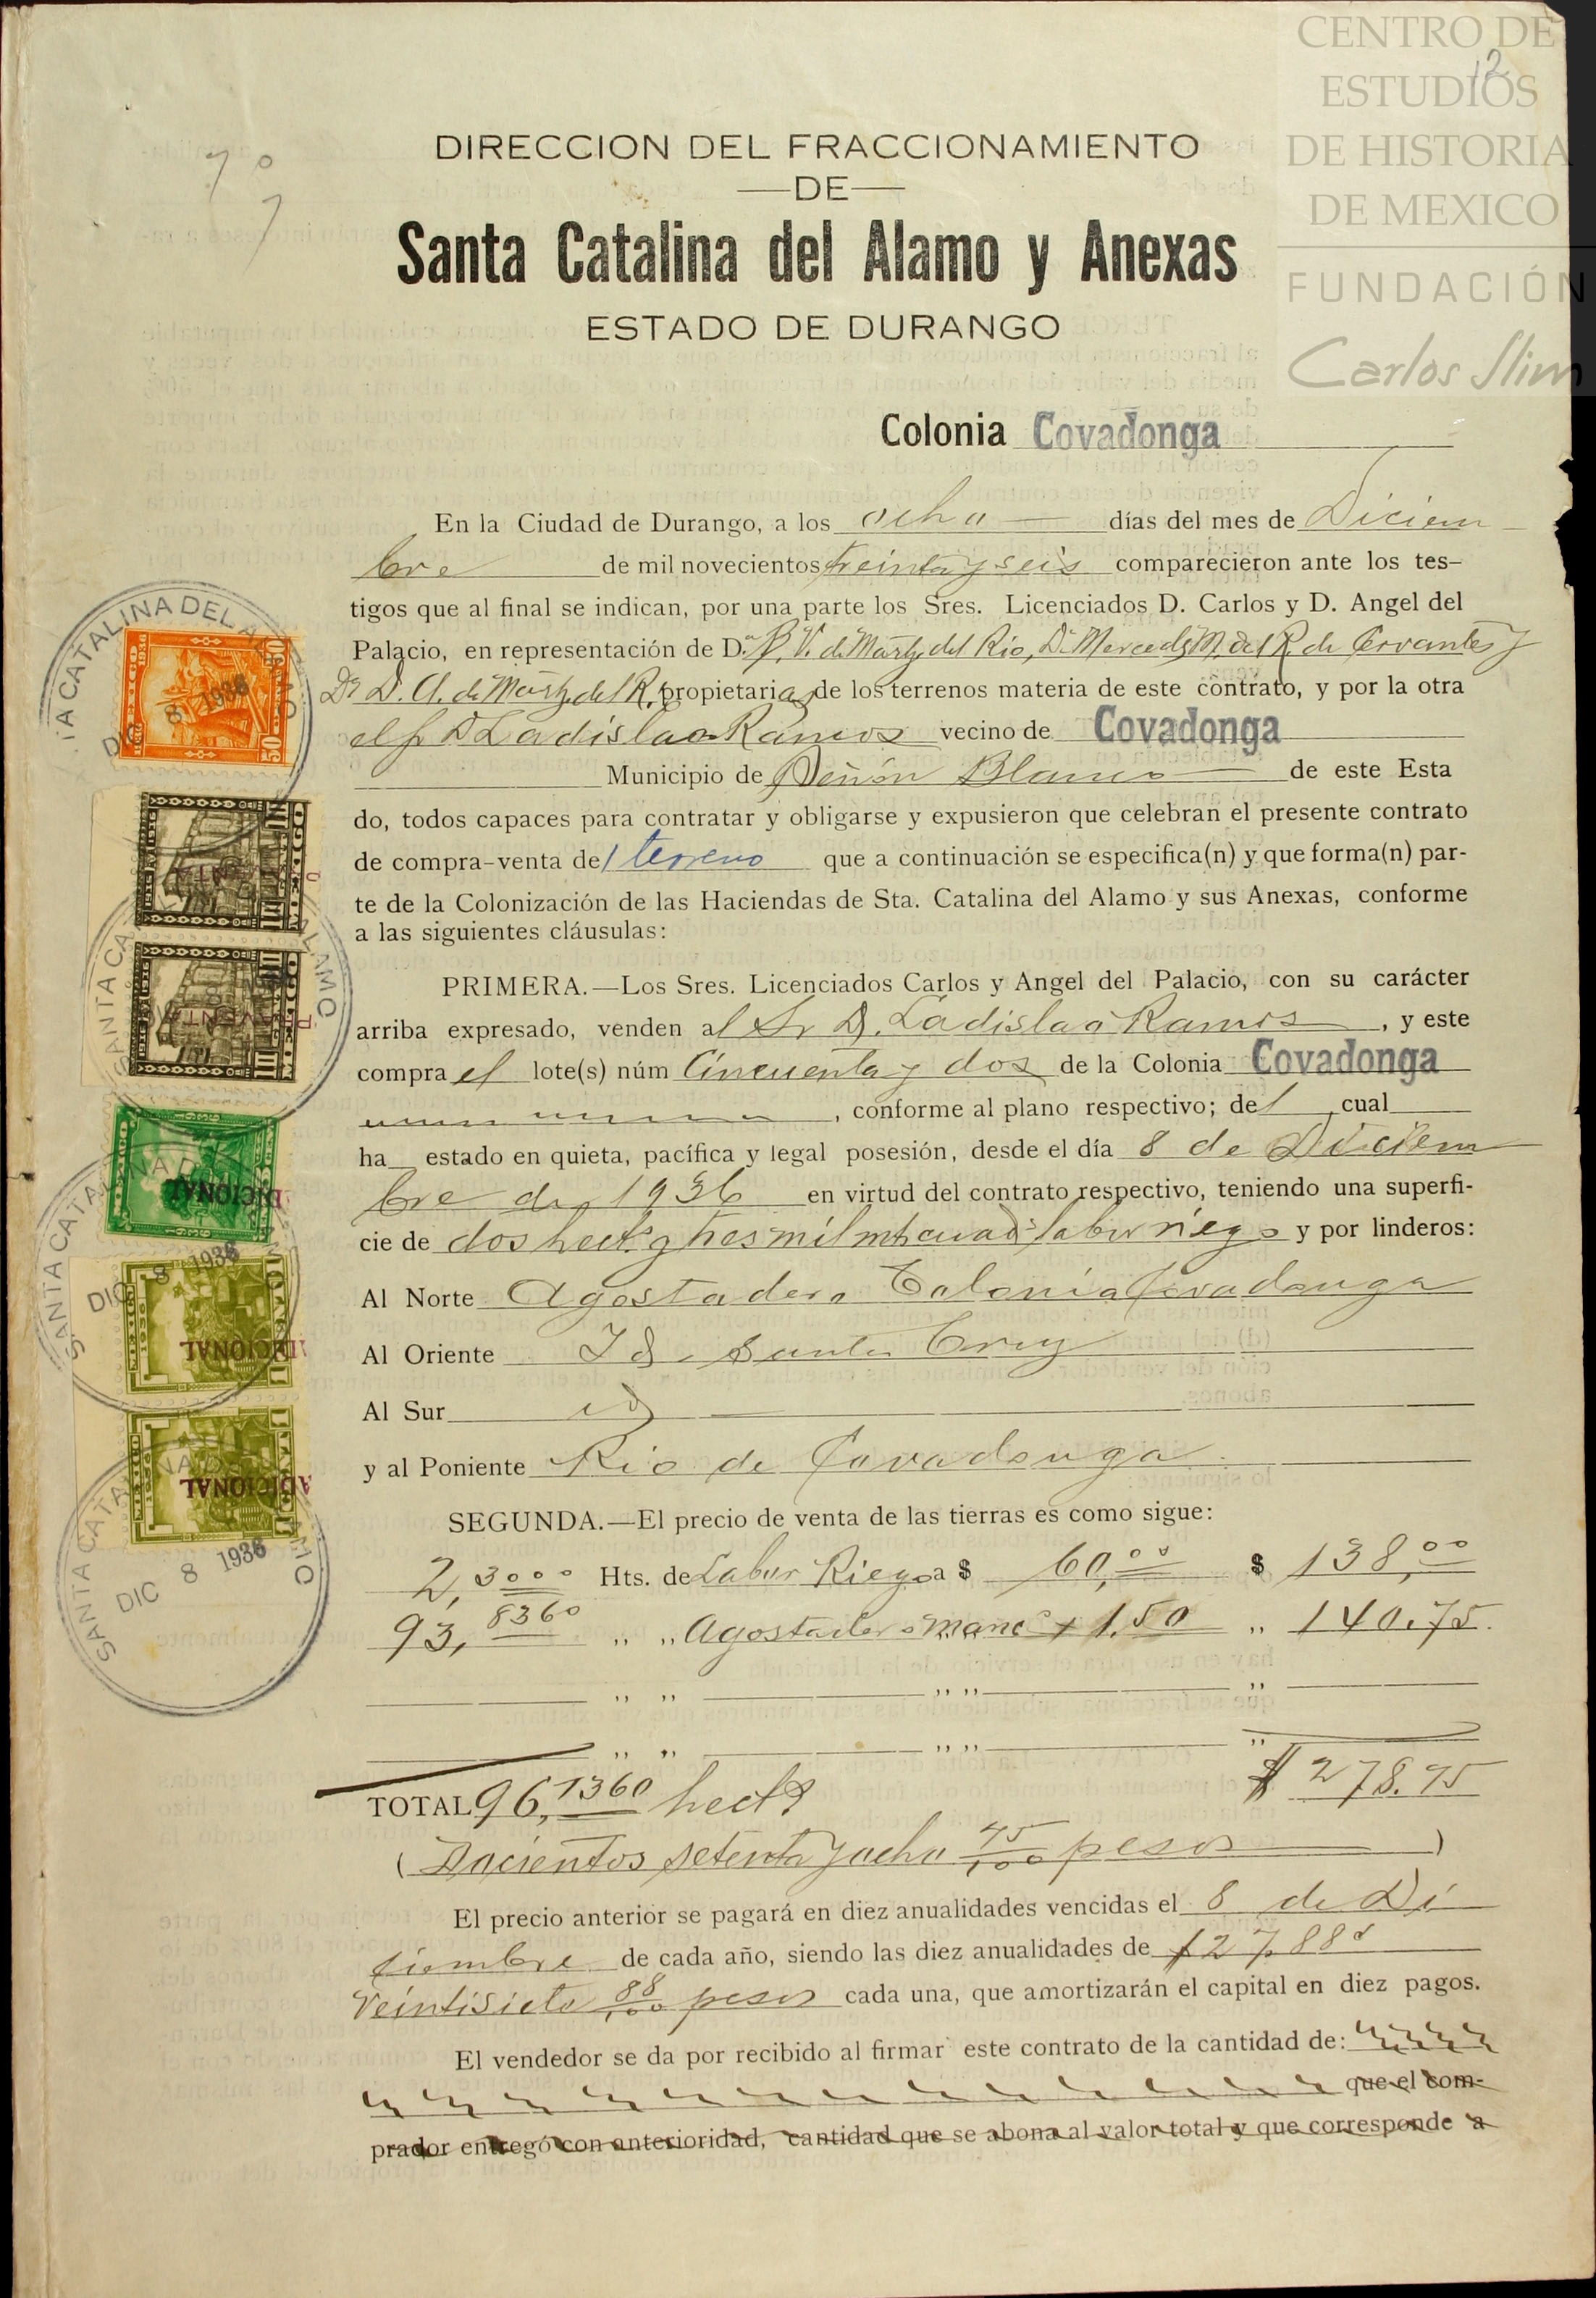 CENTRO DE
ESTUDIOS
DE HISTORIA
DE MEXICO
FUNDACIÓN
Carlos Slim
12
7º
7
DIRECCION DEL FRACCIONAMIENTO
—DE—
Santa Catalina del Alamo y Anexas
ESTADO DE DURANGO
Colonia Covadonga
En la Ciudad de Durango, a los ocho días del mes de Diciem
bre de mil novecientos treinta y seis comparecieron ante los tes-
tigos que al final se indican, por una parte los Sres. Licenciados D. Carlos y D. Angel del
Palacio, en representación de D.ª B. V. de Martz del Rio, Dª Mercedes M. del R. de Cervantes y
Dª D. A. de Martz del R. propietarias de los terrenos materia de este contrato, y por la otra
el sr D Ladislao Ramos vecino de Covadonga
Municipio de Peñón Blanco de este Esta
do, todos capaces para contratar y obligarse y expusieron que celebran el presente contrato
de compra-venta del terreno que a continuación se especifica(n) y que forma(n) par-
te de la Colonización de las Haciendas de Sta. Catalina del Alamo y sus Anexas, conforme
a las siguientes cláusulas:
PRIMERA.—Los Sres. Licenciados Carlos y Angel del Palacio, con su carácter
arriba expresado, venden al Sr D. Ladislao Ramos, y este
compra el lote(s) núm Cincuenta y dos de la Colonia Covadonga
, conforme al plano respectivo; del cual
ha estado en quieta, pacífica y legal posesión, desde el día 8 de Diciem
bre de 1936 en virtud del contrato respectivo, teniendo una superfi-
cie de dos hect. y tres mil mts cuads labor riego y por linderos:
Al Norte Agostadero Colonia Covadonga
Al Oriente Id. Santa Cruz
Al Sur id
y al Poniente Rio de Covadonga.
SEGUNDA.—El precio de venta de las tierras es como sigue:
2,3000 Hts. de Labor Riego a $ 60,00 $ 138,00
93,8360 ,, ,, Agostadero manc 1.50 ,, 140.75.
,, ,, ,, ,, ,,
,, ,, ,, ,, ,,
TOTAL 96,1360 hects $ 278.75
(Docientos setenta y ocho 75/100 pesos)
El precio anterior se pagará en diez anualidades vencidas el 8 de Di
ciembre de cada año, siendo las diez anualidades de $27,88
Veintisiete 88/100 pesos cada una, que amortizarán el capital en diez pagos.
El vendedor se da por recibido al firmar este contrato de la cantidad de:
que el com-
prador entregó con anterioridad, cantidad que se abona al valor total y que corresponde a
TA CATALINA DEL ALAMO
DIC 8 1936
50
SANTA CATALINA DEL ALAMO
ADICIONAL
SANTA CATALINA DEL ALAMO
DIC 8 1936
ADICIONAL
ADICIONAL
SANTA CATALINA DEL ALAMO
DIC 8 1936